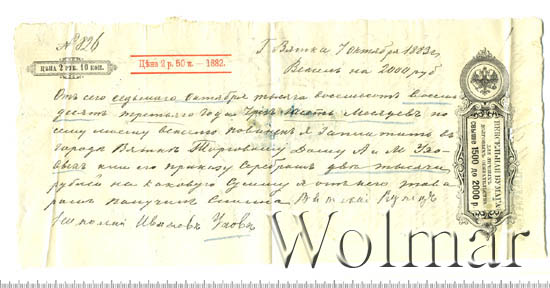 № 826
ЦѢНА 2 РУБ. 10 КОП.
Цѣна 2 р. 50 к. — 1882.
Г Вятка 7 октября 1883 г
Вексель на 2000 руб
Отъ сего седьмаго Октября тысяча восемьсотъ восемь
десятъ третьяго года Чрезъ Месяцевъ по
сему моему векселю повиненъ я Заплатить въ
городѣ Вяткѣ Торговому Дому А и М
или его приказу Серебромъ две тысячи
рублей на каковую Сумму я отъ него това
ромъ получилъ Сполна Купецъ
Ивановъ
ВЕКСЕЛЬНАЯ БУМАГА
свыше 1500 до 2000 р
Wolmar